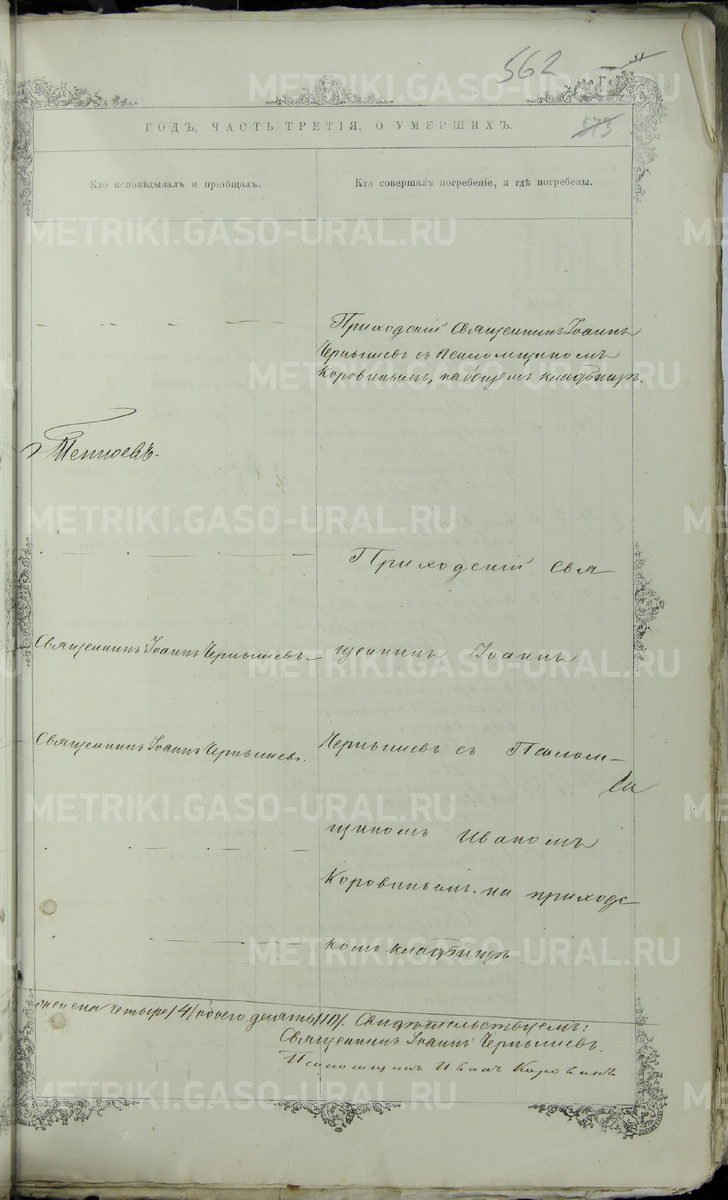 562
575
ГОДЪ, ЧАСТЬ ТРЕТІЯ, О УМЕРШИХЪ.
Кто исповѣдывалъ и пріобщалъ.
Кто совершалъ погребеніе, и гдѣ погребены.
Приходскій Священникъ Іоаннъ
Чернышевъ съ Псаломщикомъ
Коровинымъ, на общемъ кладбищѣ.
Приходскій Свя
Священникъ Іоаннъ Чернышевъ.
щенникъ Іоаннъ
Священникъ Іоаннъ Чернышевъ.
Чернышевъ съ Псалом-
щикомъ Иваномъ
Коровинымъ, на приходс
комъ кладбищѣ
четыре /4/ обоего десять /10/. Свидѣтельствуемъ:
Священникъ Іоаннъ Чернышевъ.
Псаломщикъ Иванъ Коровинъ
METRIKI.GASO-URAL.RU